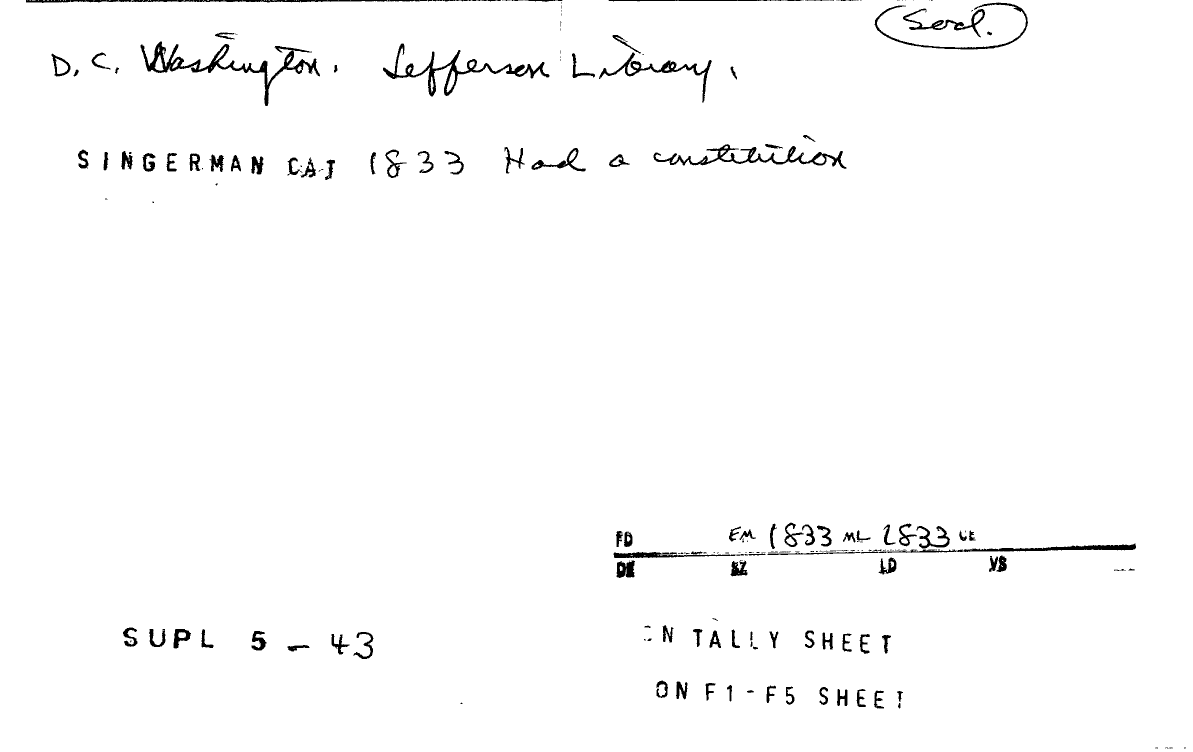 Socl.
D.C. Washington. Jefferson Library.
SINGERMAN CAT 1833 Had a constitution
FD EM 1833 ML 1833 UE
DE SZ LD VS
SUPL 5 - 43
ON TALLY SHEET
ON F1-F5 SHEET